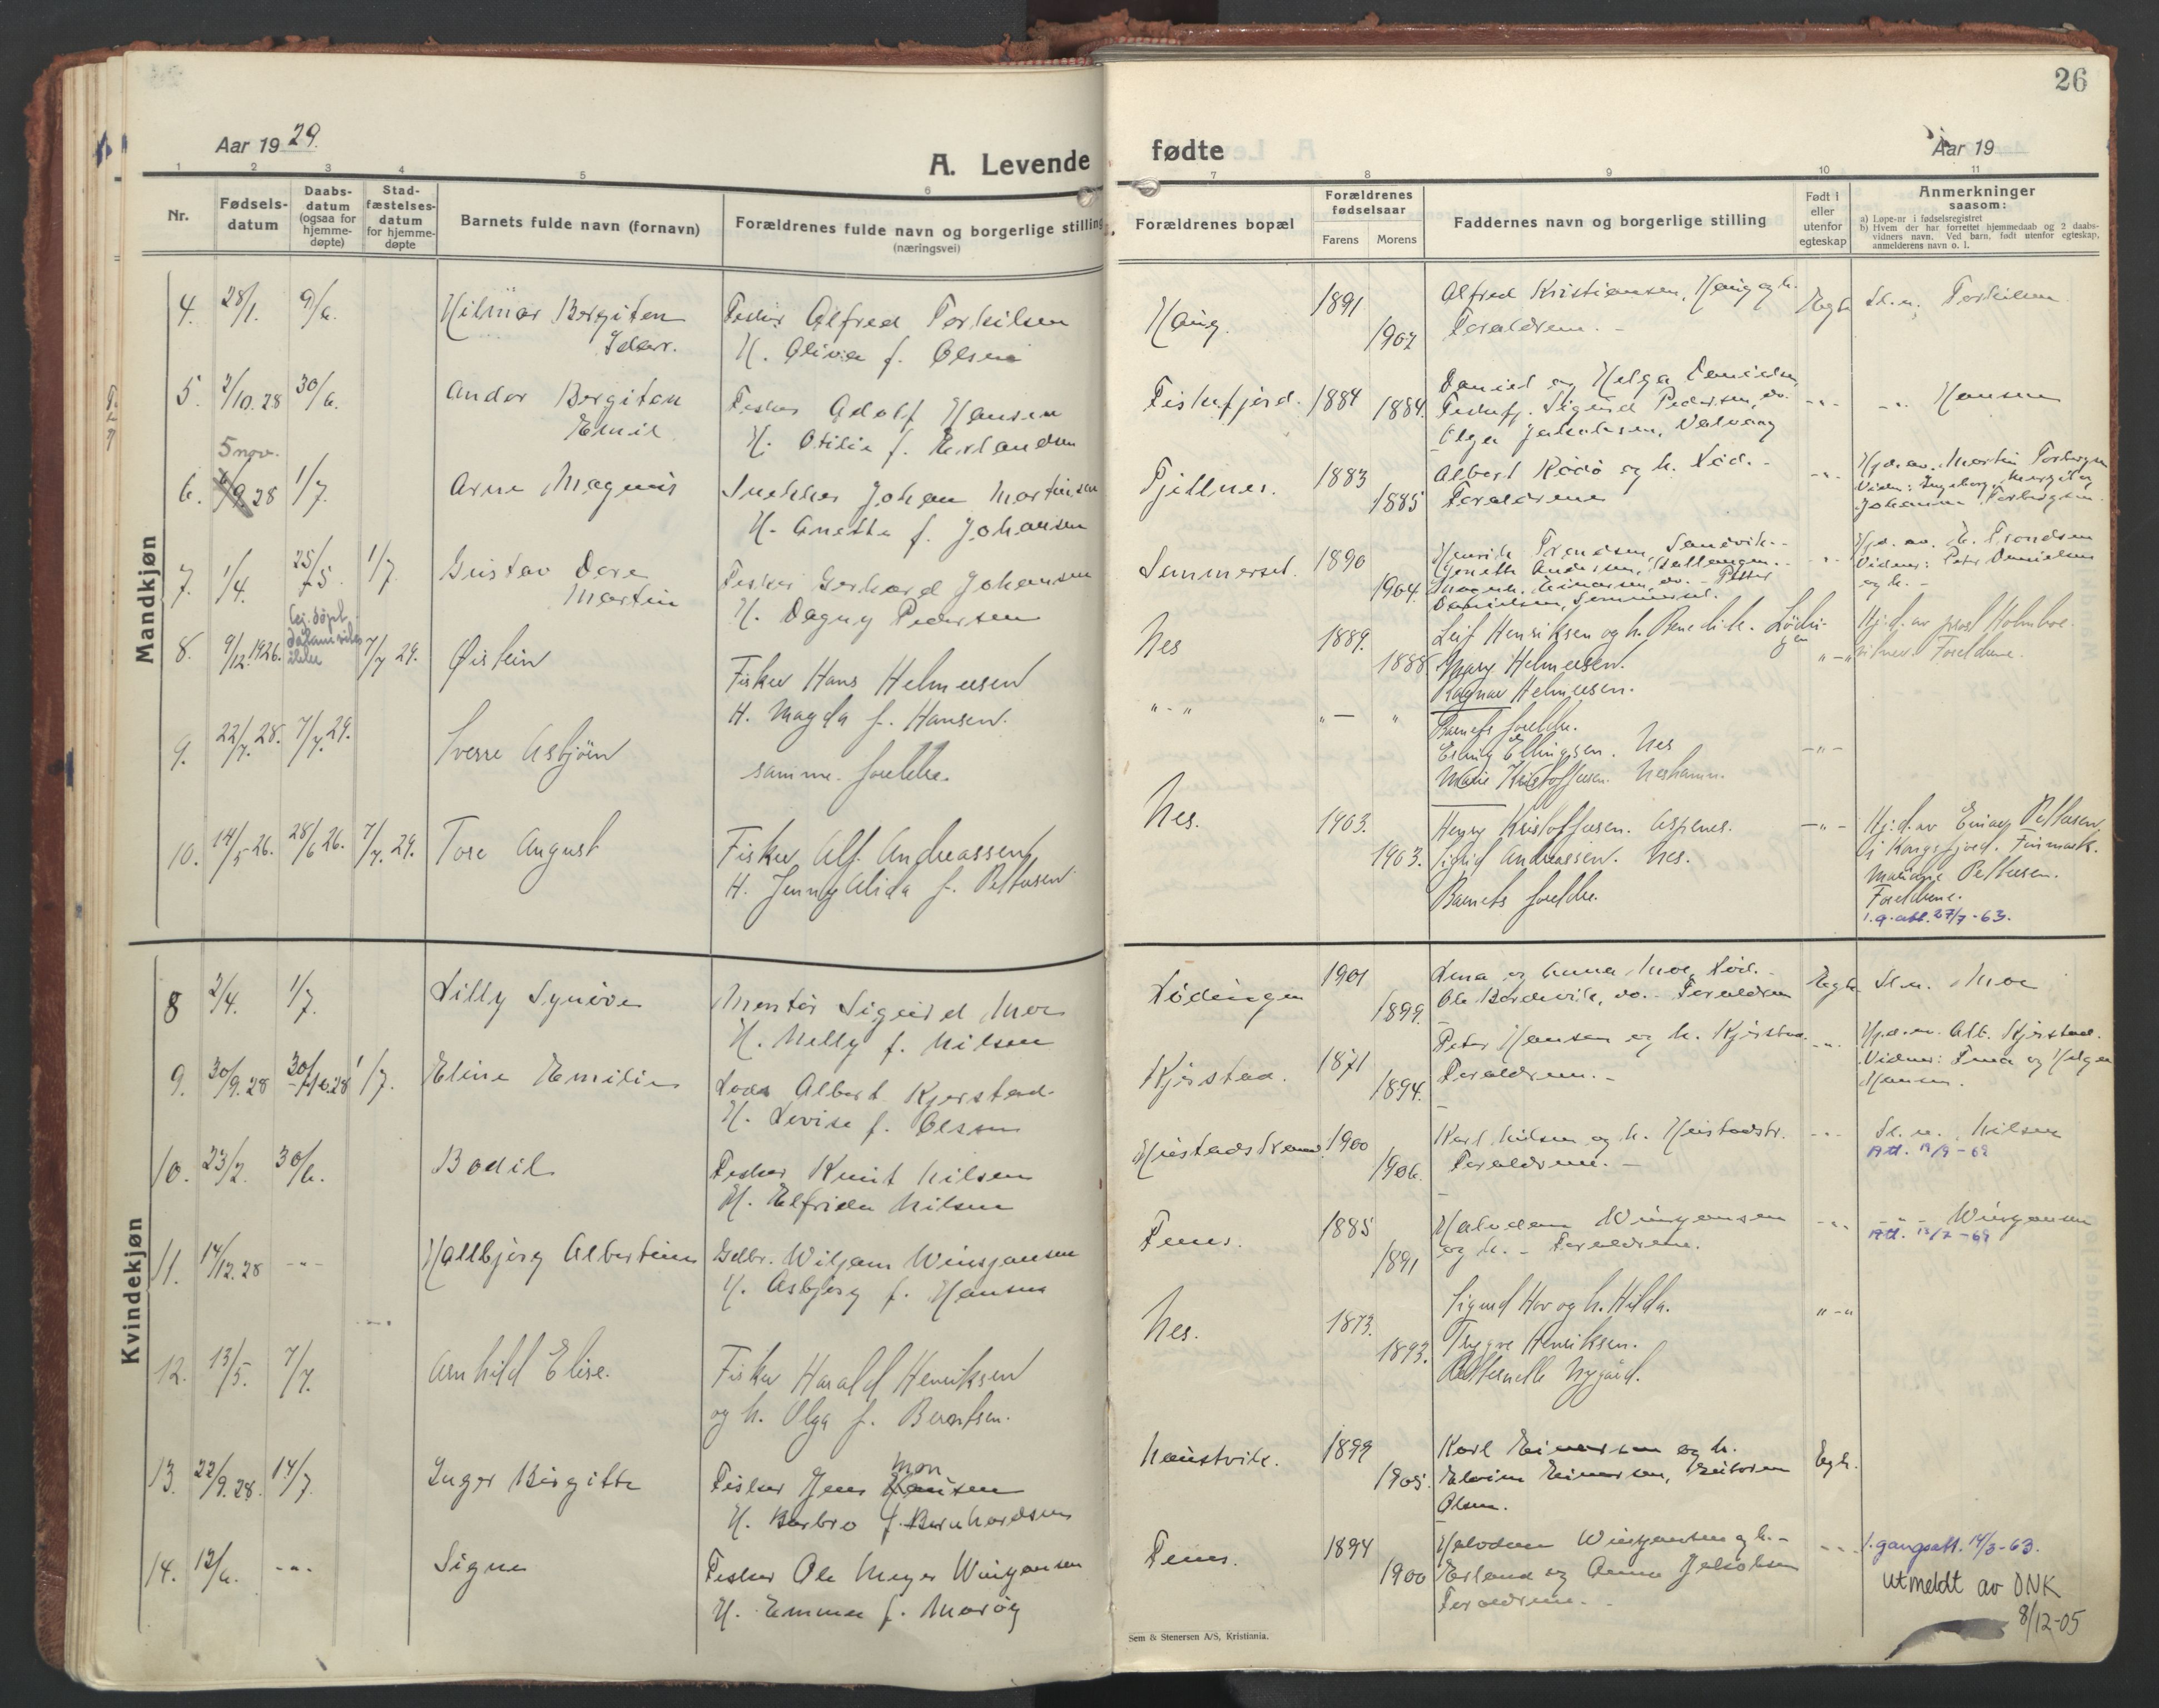 26
Aar 1929.
A. Levende fødte
Aar 19
1 2 3 4 5 6 7 8 9 10 11
Nr.
Fødsels-
datum
Daabs-
datum
(ogsaa for
hjemme-
døpte)
Stad-
fæstelses-
datum
for hjemme-
døpte
Barnets fulde navn (fornavn)
Forældrenes fulde navn og borgerlige stilling
(næringsvei)
Forældrenes bopæl
Forældrenes
fødselsaar
Farens Morens
Faddernes navn og borgerlige stilling
Født i
eller
utenfor
egteskap
Anmerkninger
saasom:
a) Løpe-nr i fødselsregistret
b) Hvem der har forrettet hjemmedaab og 2 daabs-
vidners navn. Ved barn, født utenfor egteskap,
anmelderens navn o. l.
Mandkjøn
4. 28/1. 9/6. Hilmar Bergiton
Fisker Alfred Torkilsen
H. Olivia f. Olsen
Haug. 1891 1902
Alfred Kristiansen, Haug og h.
Foraldrene. -
Egte. Sl. n. Torkilsen
5. 2/10.28 30/6. Andor Bergiton
Emil
Fisker Adolf Hansen
H. Otilie f. Erlandsen
Fiskefjord. 1884 1884.
Daniel og Helga Danielsen,
Fiskefj. Sigurd Pedersen, do.
Olga Jakobsen, Valvaag
Hansen
5 nov.
6. 9.28 1/7. Arne Magnus
Snekker Johan Martinsen
H. Anette f. Johansen
Fjellnes. 1883 1885
Albert Rødø og h. Lød. -
Foraldrene
Hj.d. av. Martin Torbergsen
Vidn: Ingeborg Margit og
Johanna Torbergsen.
7. 1/4. 25/5. 1/7. Gustav Dore
Martin
Fisker Gerhard Johansen
H. Dagny Pedersen
Sommerset. 1890 1904.
Henrik Trondsen, Sandvik. -
Danielsen, Sommerset.
Hj.d. av. H. Trondsen
Vidner: Peter Danielsen
og h. -
8. 9/12.1926. 7/7 29. Øistein
Fisker Hans Helmersen
H. Magda f. Hansen.
Nes 1889. 1888
Leif Henriksen og h. Benedikte. Lødin-
gen
Mary Helmersen.
Ragnar Helmersen.
Barnets foreldre.
Hj.d. av prost Holmboe.
vitner. Foreldrene.
9. 22/7.28. 7/7.29. Sverre Asbjörn
samme foreldre.
Emily Ellingsen. Nes
Marie Kristoffersen. Neshamn.
10. 14/5 26. 28/6 26. 7/7.29. Tore August
Fisker Alf. Andreassen
H. Jenny Alida f. Pettersen
Nes. 1903. 1903.
Henry Kristoffersen. Aspenes.
Sigrid Andreassen. Nes.
Barnets foreldre.
Hj.d. av Einar Pettersen
i Kongsfjord. Finmark.
Marianne Pettersen.
Foreldrene.
1.g.att. 27/7-63.
Kvindekjøn
8 2/4. 1/7. Lilly Synöve
Montör Sigurd Moe
H. Nelly f. Nilsen
Lödingen 1901 1899.
Lena og Anna Moe, Löd. -
Ole Bordevik, do. - Foraldren
Egte. Sl. n. Moe
9. 30/9.28 30/10.28 1/7. Eline Emilie
Lods Albert Kjerstad
H. Lovise f. Olsen
Kjerstad. 1871 1894.
Peter Hansen og h. Kjerstad.
Foraldrene. -
Hj.d. av. Alb. Kjerstad.
Vidner: Tina og Helga
Hansen.
10. 23/2. 30/6. Bodil
Fisker Knut Nilsen
H. Elfrida Nilsen
1900 1906.
Karl Nilsen og h.
Foraldrene. -
Sl. n. Nilsen
Att. 19/9-69
11. 14/12.28 -"- Hallbjörg Albertine
Gdbr. Wiljam Wingansen
H. Asbjörg f. Hansen
1885 1891
Halvdan Wingansen
og h. - Foraldrene.
Wingansen
12. 13/5. 7/7. Arnhild Elise.
Fisker Harald Henriksen
og h. Olga f. Berntsen.
Nes. 1873. 1893.
Sigurd Hov og h. Hilda.
Trygve Henriksen.
Petternelle Nygård.
13. 22/9.28. 14/7. Inger Birgitte
Fisker Jens Hansen
H. Borbro f. Bernhardsen
Naustvik. 1899 1905.
Karl Einarsen og h.
Olsen.
Egte.
14. 12/6. -"- Signe
Fisker Ole Meyer Wingansen
H. Emma f. Marög
1894 1900
Halvdan Wingansen og h. -
Erland og Anna Jakobsen
Foraldrene. -
1.gangsatt. 14/3-63.
utmeldt av DNK
8/12-05
Sem & Stenersen A/S, Kristiania.